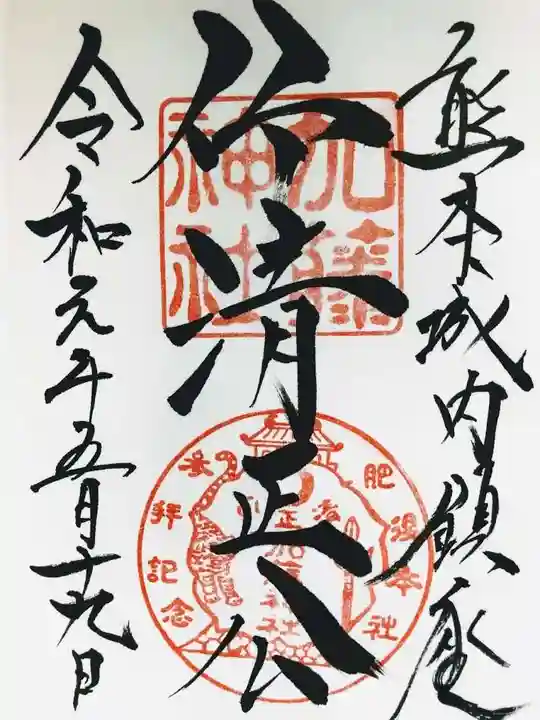 熊本城内鎮座
清正公
令和元年五月十九日
加藤
神社
肥後本社
参拝記念
清正公
加藤神社